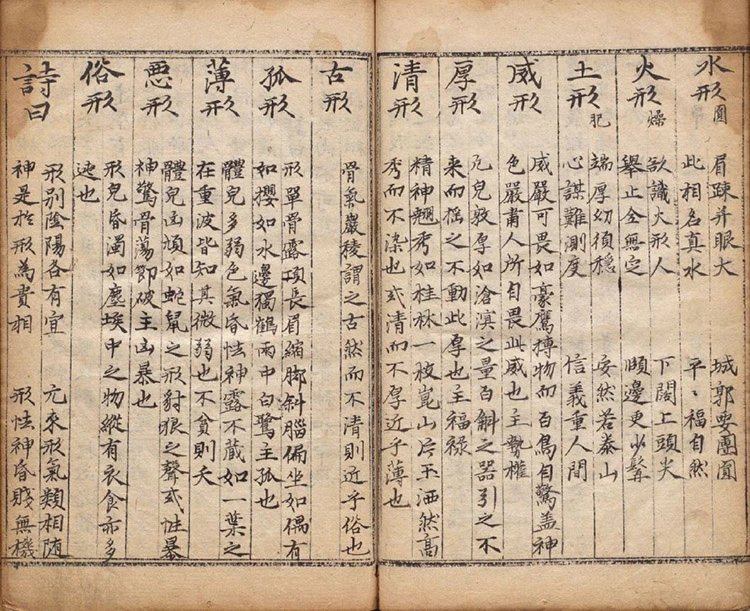 水形 圓
眉踈并眼大 城郭要團圓
此相名真水 平〻福自然
火形 燥
欲識火形人 下闊上頭尖
舉止全無定 頤邊更少髯
土形 犯
端厚幼須穩 安然若泰山
心謀難測度 信義重人間
威形
威嚴可畏如豪鷹搏物而百鳥自驚盖神
色嚴肅人所自畏此威也主勢權
厚形
凡皃敦厚如滄溟之量百斛之器引之不
來而搖之不動此厚也主福祿
清形
精神翹秀如桂林一枝崑山片玉洒然高
秀而不染也或清而不厚近乎薄也
古形
骨氣嚴稜謂之古然而不清則近乎俗也
孤形
形單骨露項長眉縮脚斜腦偏坐如偶有
如攖如水邊獨鶴雨中白鷺主孤也
薄形
體皃多弱色氣昏怯神露不藏如一葉之
在重波皆知其微弱也不貧則夭
悪形
體皃凶頑如蛇鼠之形豺狼之聲或性暴
神驚骨蕩即破主凶暴也
俗形
形皃昏濁如塵埃中之物縱有衣食亦多
迍也
詩曰
形別陰陽各有宜 元來形氣類相随
神是於形為貴相 形怯神昏賤無機